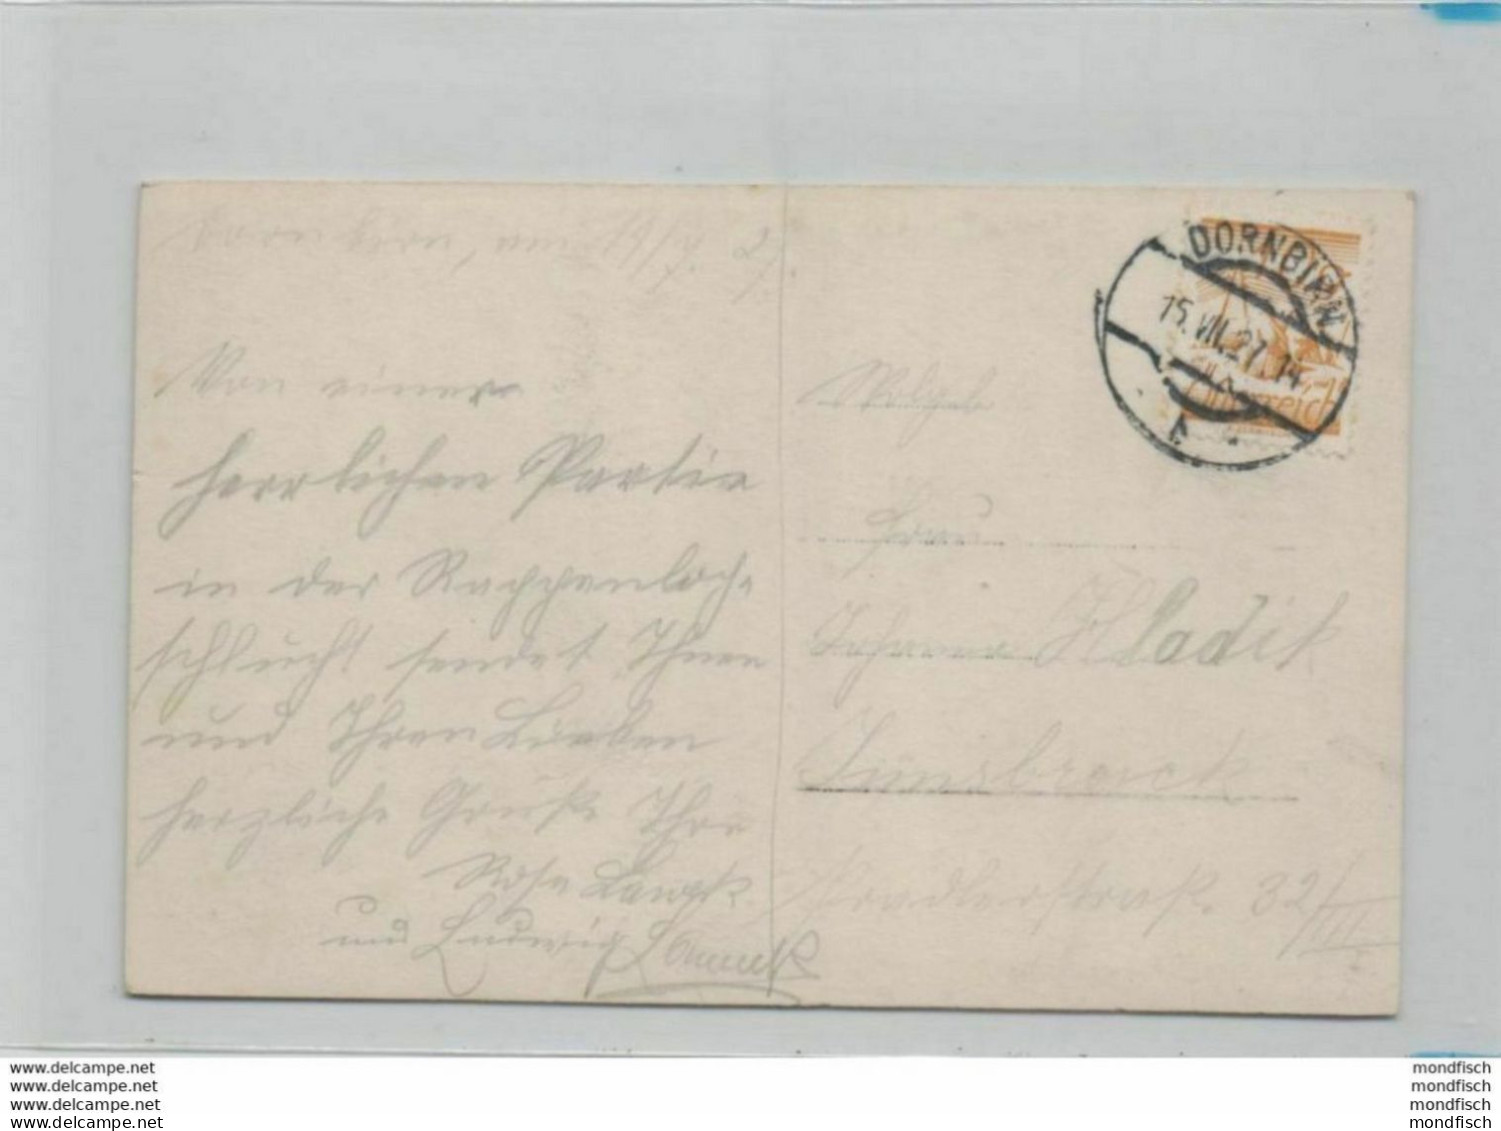 Dornbirn, am 14/7. 27.
Von einer
herrlichen Partie
in der Rappenloch-
schlucht sendet Ihnen
und Ihren Lieben
herzliche Grüße Ihre
Rosa
und Ludwig
DORNBIRN
15.VII.27.14
Österreich
Wolgeb
Frau
Johanna Hladik
Innsbruck
Pradlerstraße. 32/III
www.delcampe.net
www.delcampe.net
www.delcampe.net
www.delcampe.net
mondfisch
mondfisch
mondfisch
mondfisch